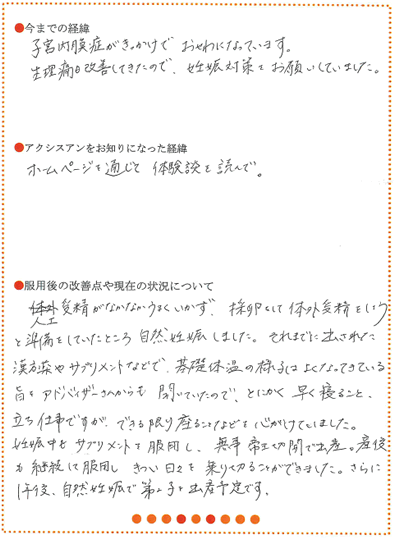 ●今までの経緯
子宮内膜症がきっかけで おせわになっています。
生理痛も改善してきたので、妊娠対策を お願いしていました。
●アクシスアンをお知りになった経緯
ホームページを通じて 体験談を読んで。
●服用後の改善点や現在の状況について
人工受精がなかなかうまくいかず、採卵をして体外受精をしよう
と準備をしていたところ 自然妊娠しました。それまでに出された
漢方薬やサプリメントなどで、基礎体温の様子はよくなってきている
旨をアドバイザーさんからも聞いていたので、とにかく早く寝ること、
立ち仕事ですが、できる限り座ることなどを心がけていました。
妊娠中もサプリメントを服用し、無事 帝王切開で出産。産後
も継続して服用し きつい日々を乗りくることができました。さらに
1年後、自然妊娠で第2子を出産予定です。